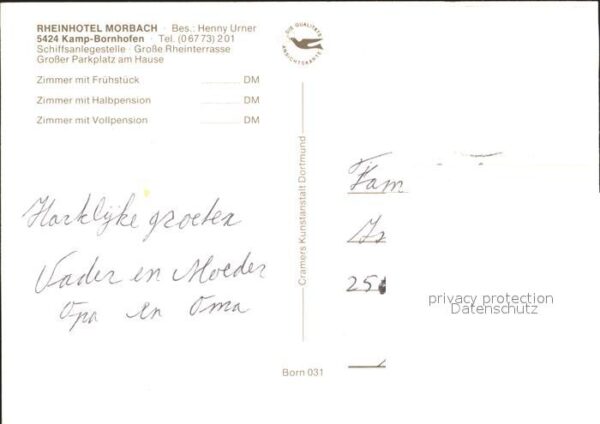 RHEINHOTEL MORBACH · Bes.: Henny Urner
5424 Kamp-Bornhofen · Tel. (06773) 201
Schiffsanlegestelle · Große Rheinterrasse
Großer Parkplatz am Hause
Zimmer mit Frühstück DM
Zimmer mit Halbpension DM
Zimmer mit Vollpension DM
DIE QUALITÄTS ANSICHTSKARTE
Cramers Kunstanstalt Dortmund
Hartelijke groeten
Vader en Moeder
Opa en Oma
Fam
25
privacy protection
Datenschutz
Born 031